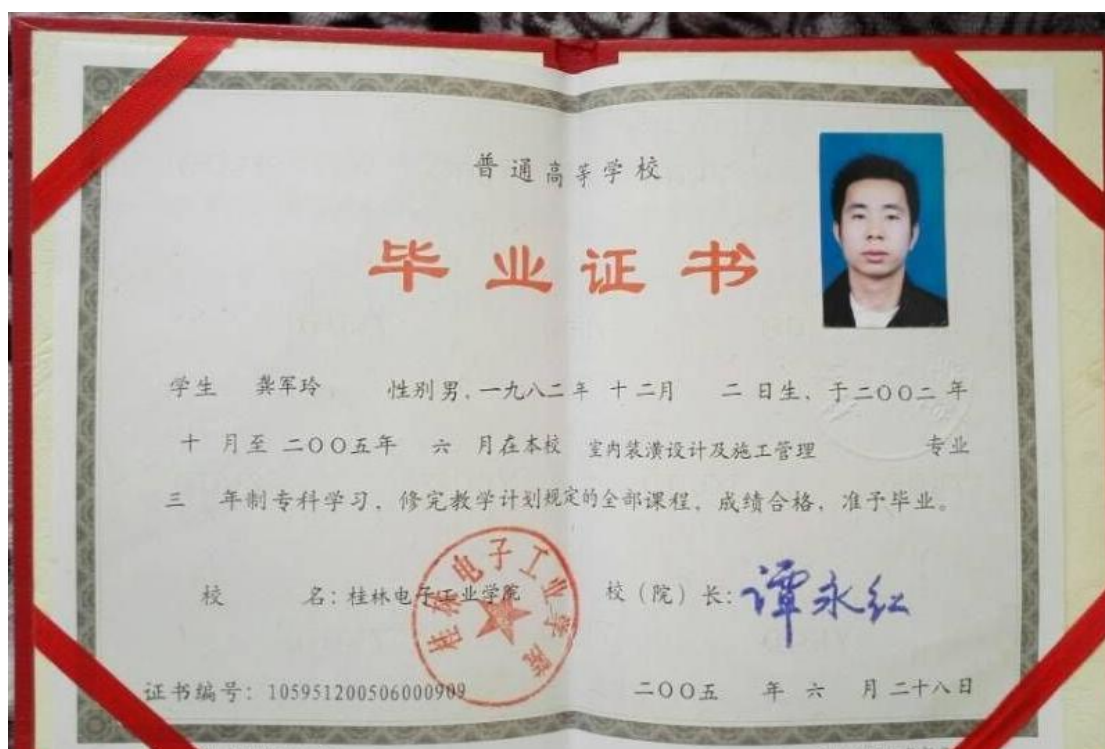 普通高等学校
毕业证书
学生 龚军玲 性别男,一九八二年 十二月 二日生,于二〇〇二年
十月至二〇〇五年 六 月在本校 室内装潢设计及施工管理 专业
三 年制专科学习,修完教学计划规定的全部课程,成绩合格,准予毕业。
校 名:桂林电子工业学院 校(院)长:谭永红
桂林电子工业学院
证书编号:105951200506000909 二〇〇五 年 六 月 二十八日